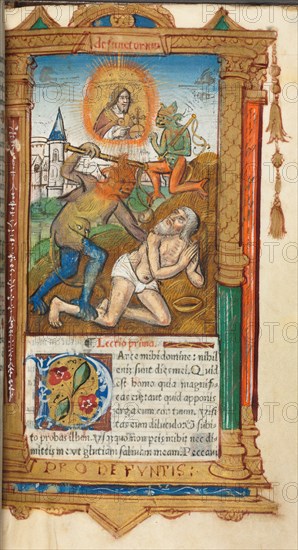 defunctorum
Lectio prima.
PArce mihi domine: nihil
enim sunt dies mei. Quid
est homo quia magnifi
cas eum: aut quid apponis
erga eum cor tuum. Visi
tas eum diluculo: & subi
to probas illum. Usquequo non parcis mihi: nec di
mittis me vt glutiam saliuam meam. Peccaui
PRO DEFVNTIS: